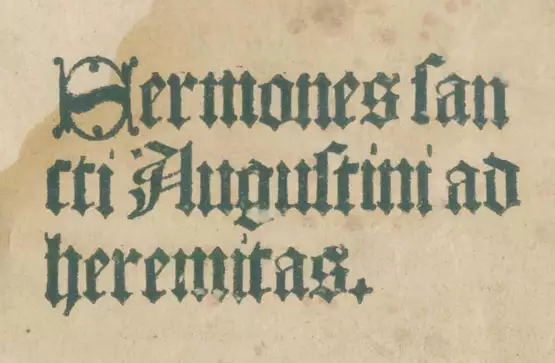 Sermones ſan
cti Auguſtini ad
heremitas.